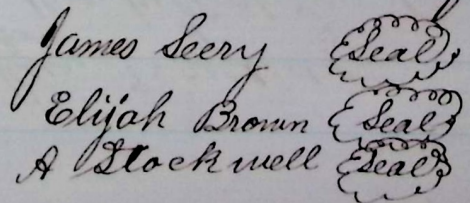 James Seery Seal
Elijah Brown Seal
A Stockwell Seal